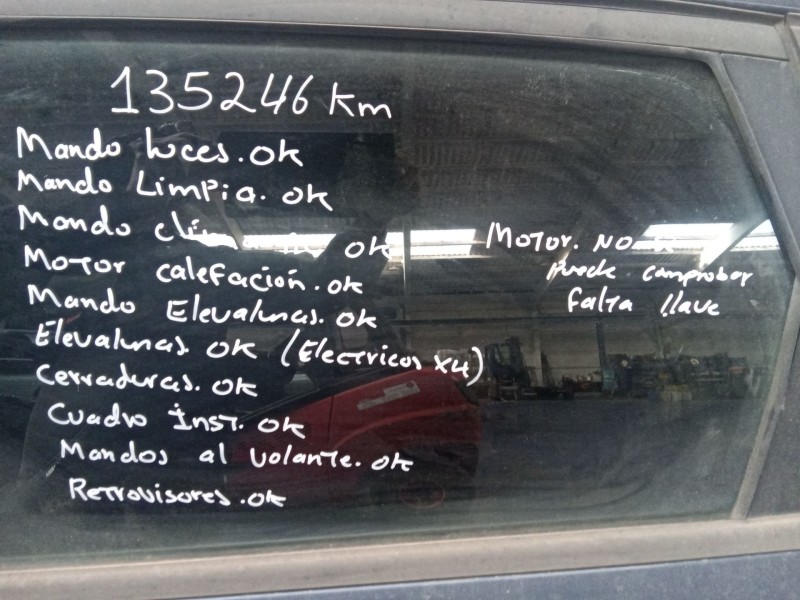 135246 Km
Mando luces. ok
Mando Limpia. ok
Mando ok
Motor calefación. ok
Mando Elevalunas. ok
Elevalunas. ok (Electricos x4)
Cerraduras. ok
Cuadro Inst. ok
Mandos al volante. ok
Retrovisores. ok
Motor. NO
Puede comprobar
falta llave